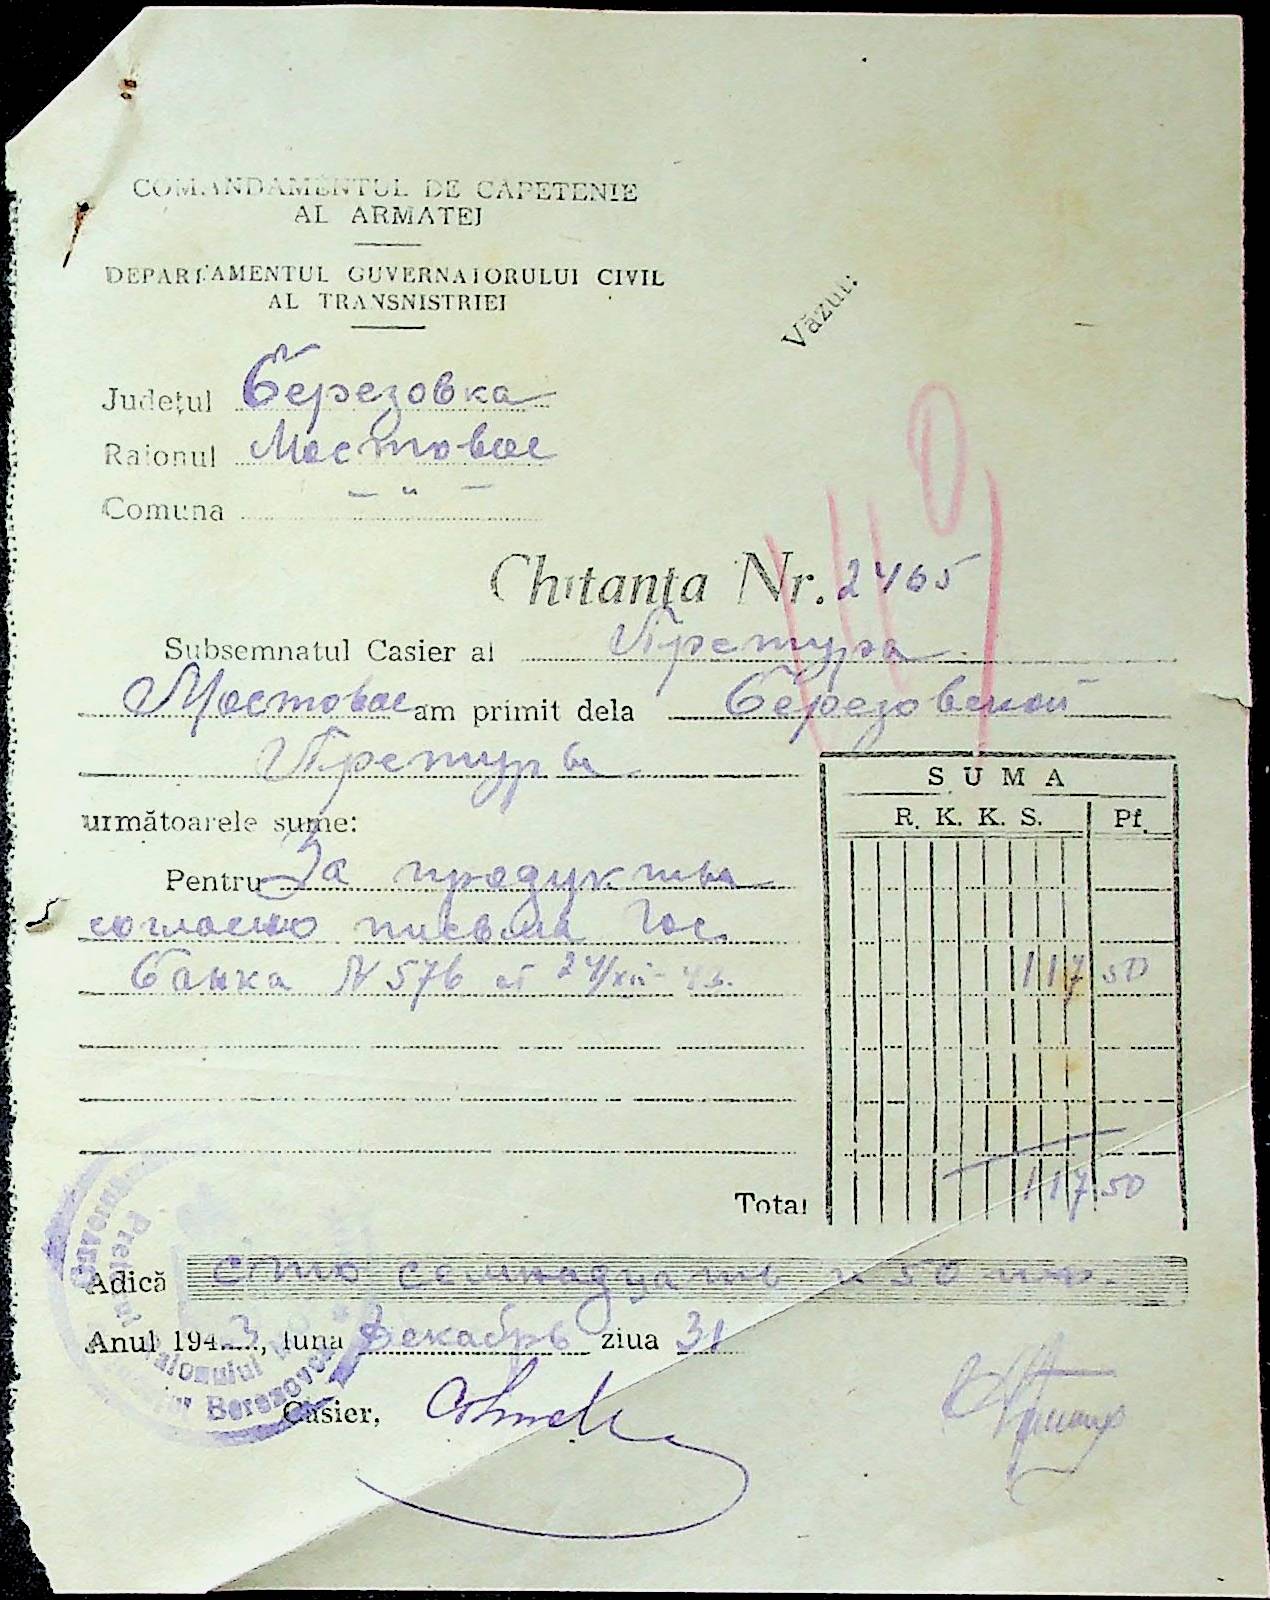 COMANDAMENTUL DE CAPETENIE
AL ARMATEJ
DEPARTAMENTUL GUVERNATORULUI CIVIL
AL TRANSNISTRIEI
Văzut:
Județul Березовка
Raionul Мостовое
Comuna — „ —
Chitanța Nr. 2465
Subsemnatul Casier al Претура
Мостовое am primit dela Березовской
Претуры
următoarele sume:
SUMA
R. K. K. S. Pf.
Pentru За продукты
согласно письма Гос.
банка N 576 от 24/XII-43. 117 50
Total 117.50
Adică сто семнадцать и 50 пф.
Anul 1943, luna Декабрь ziua 31
Casier,